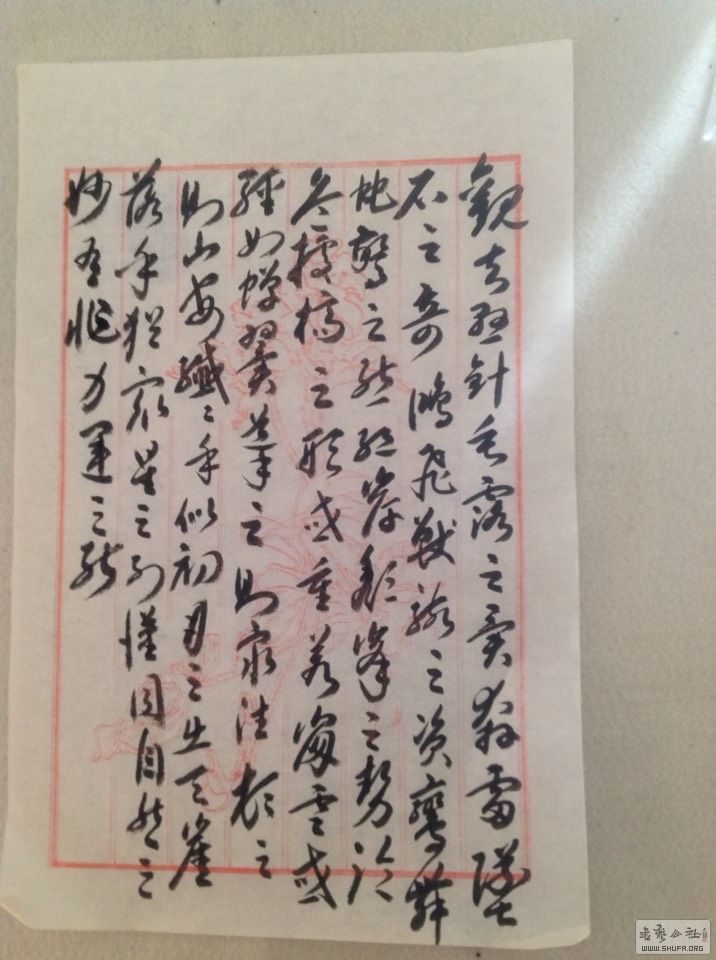 觀夫懸針垂露之異奔雷墜
石之奇鴻飛獸駭之資鸞舞
虵驚之態絕岸頹峰之勢臨
危據槁之形或重若崩雲或
輕如蟬翼導之則泉注頓之
則山安纖〻乎似初月之出天崖
落乎猶眾星之列漢同自然之
妙有非力運之能
WWW.SHUFA.ORG